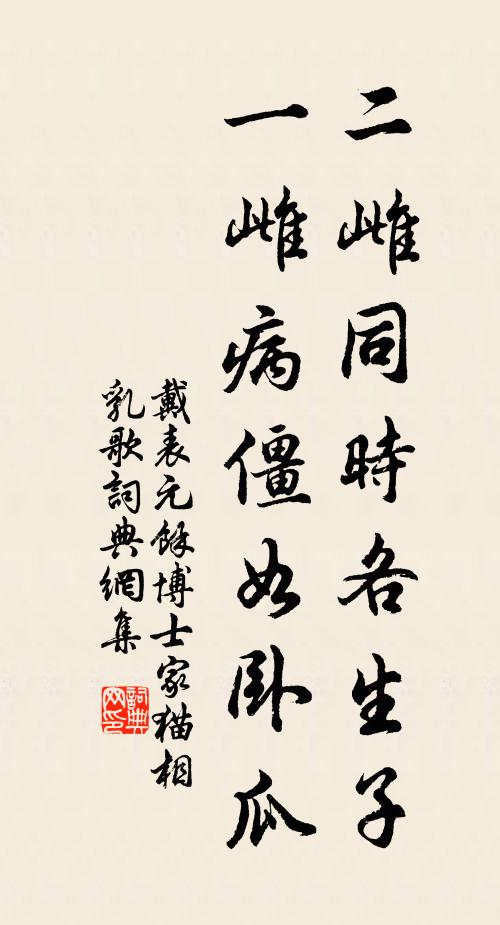 二雌同時各生子
一雌病僵如卧瓜
戴表元餘博士家猫相
乳歌詞典網集
詞典
网印